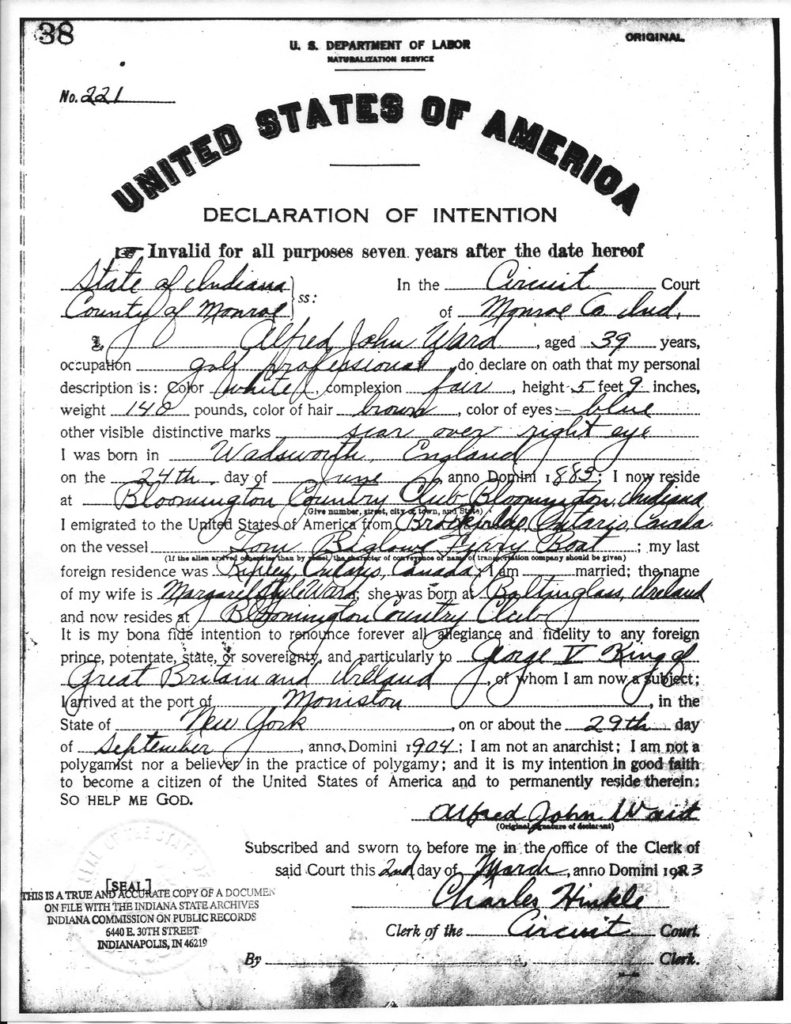 38
U. S. DEPARTMENT OF LABOR
NATURALIZATION SERVICE
ORIGINAL
No. 221
UNITED STATES OF AMERICA
DECLARATION OF INTENTION
☞ Invalid for all purposes seven years after the date hereof
State of Indiana
County of Monroe } ss:
In the Circuit Court
of Monroe Co Ind.
I, Alfred John Ward, aged 39 years,
occupation golf professional, do declare on oath that my personal
description is: Color white, complexion fair, height 5 feet 9 inches,
weight 140 pounds, color of hair brown, color of eyes blue
other visible distinctive marks scar over right eye
I was born in Wadsworth, England
on the 24th day of June anno Domini 1883; I now reside
at Bloomington Country Club Bloomington, Indiana
(Give number, street, city or town, and State)
I emigrated to the United States of America from Brockville, Ontario, Canada
on the vessel Tom Ferry Boat; my last
(If the alien arrived otherwise than by vessel, the character of conveyance or name of transportation company should be given)
foreign residence was Ripley, Ontario, Canada; I am married; the name
of my wife is Ward; she was born at Baltinglass, Ireland
and now resides at Bloomington Country Club
It is my bona fide intention to renounce forever all allegiance and fidelity to any foreign
prince, potentate, state, or sovereignty, and particularly to George V King of
Great Britain and Ireland, of whom I am now a subject;
I arrived at the port of Moniston, in the
State of New York, on or about the 29th day
of September, anno Domini 1904; I am not an anarchist; I am not a
polygamist nor a believer in the practice of polygamy; and it is my intention in good faith
to become a citizen of the United States of America and to permanently reside therein:
SO HELP ME GOD.
Alfred John Ward
(Original signature of declarant)
Subscribed and sworn to before me in the office of the Clerk of
said Court this 2nd day of March, anno Domini 1923
[SEAL]
Charles Hinkle
Clerk of the Circuit Court.
By , Clerk.
THIS IS A TRUE AND ACCURATE COPY OF A DOCUMEN
ON FILE WITH THE INDIANA STATE ARCHIVES
INDIANA COMMISSION ON PUBLIC RECORDS
6440 E. 30TH STREET
INDIANAPOLIS, IN 46219